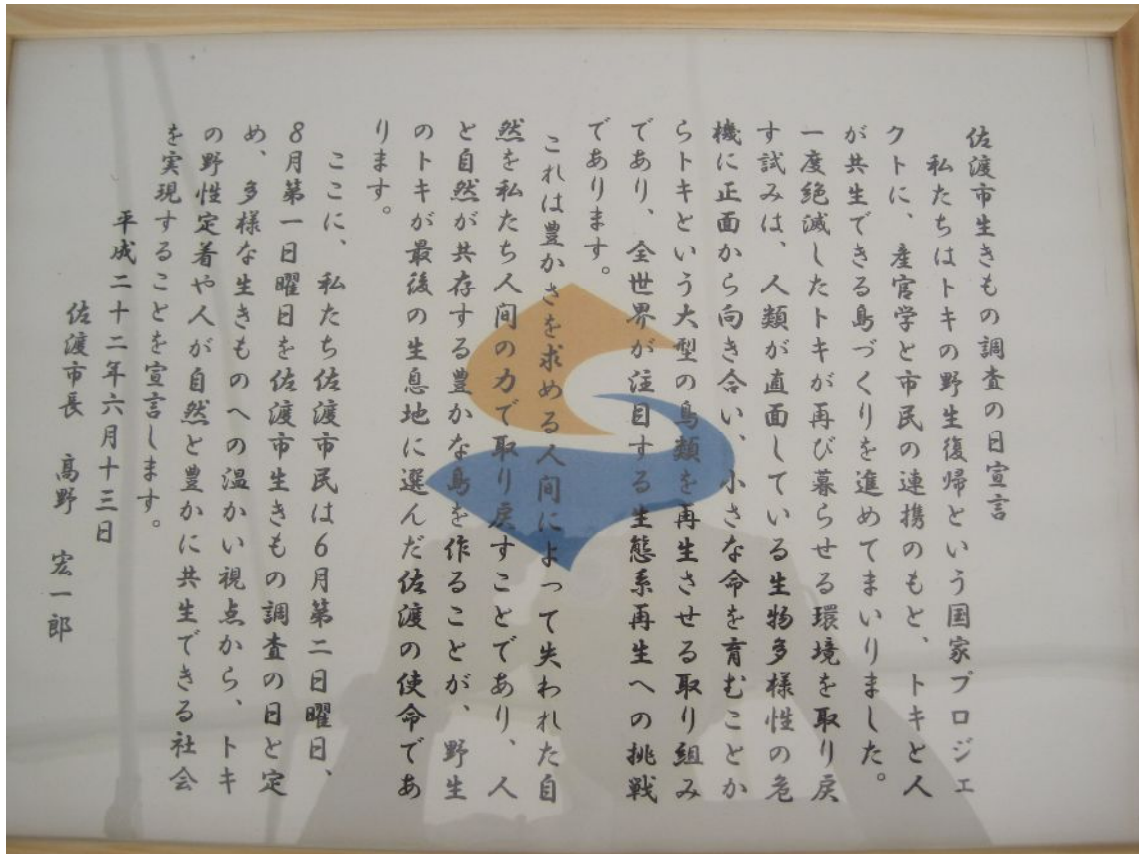 佐渡市生きもの調査の日宣言
私たちはトキの野生復帰という国家プロジェ
クトに、産官学と市民の連携のもと、トキと人
が共生できる島づくりを進めてまいりました。
一度絶滅したトキが再び暮らせる環境を取り戻
す試みは、人類が直面している生物多様性の危
機に正面から向き合い、小さな命を育むことか
らトキという大型の鳥類を再生させる取り組み
であり、全世界が注目する生態系再生への挑戦
であります。
これは豊かさを求める人間によって失われた自
然を私たち人間の力で取り戻すことであり、人
と自然が共存する豊かな島を作ることが、野生
のトキが最後の生息地に選んだ佐渡の使命であ
ります。
ここに、私たち佐渡市民は6月第二日曜日、
8月第一日曜日を佐渡市生きもの調査の日と定
め、多様な生きものへの温かい視点から、トキ
の野性定着や人が自然と豊かに共生できる社会
を実現することを宣言します。
平成二十二年六月十三日
佐渡市長　高野　宏一郎